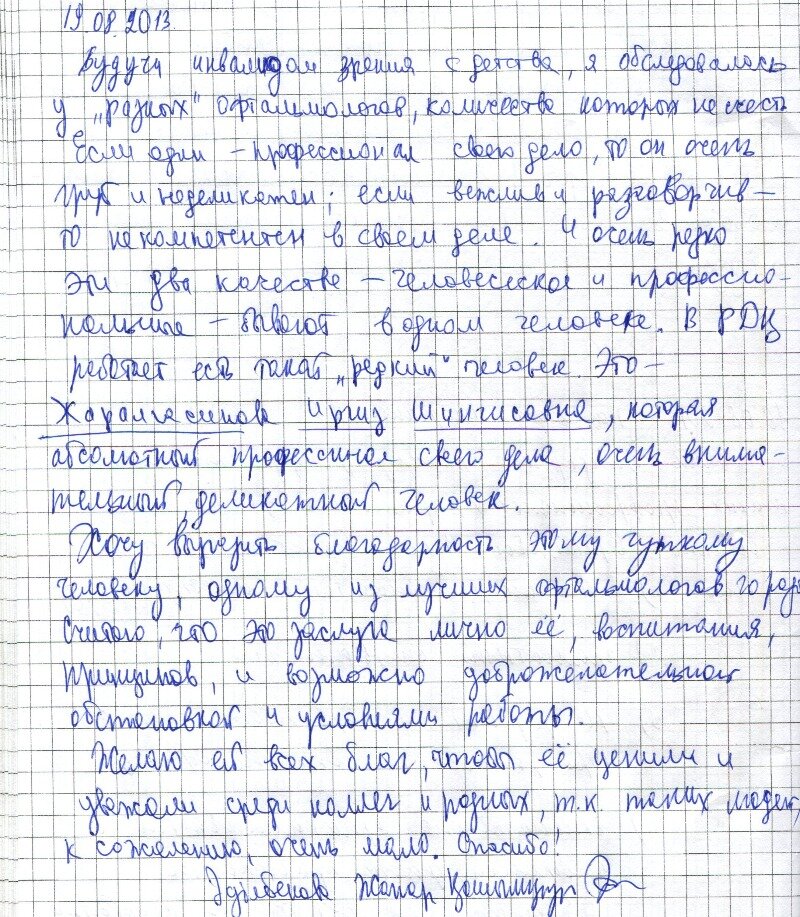 19.08.2013.
Будучи инвалидом зрения с детства, я обследовалась
у „разных" офтальмологов, количества которых не счесть
Если один – профессионал своего дело, то он очень
груб и неделикатен; если вежлив и разговорчив –
то некомпетентен в своем деле. И очень редко
эти два качества – человеческое и профессио-
нальные – бывают в одном человеке. В РДЦ
работает есть такой „редкий" человек. Это –
Жаралгасинова Иргиз Шингисовна, которая
абсолютный профессинал своего дела, очень внима-
тельный, деликатный человек.
Хочу выразить благодарность этому чуткому
человеку, одному из лучших офтальмологов города
Считаю, что это заслуга лично её, воспитания,
принципов, и возможно доброжелательной
обстановкой и условиями работы.
Желаю ей всех благ, чтобы её ценили и
уважали среди коллег и родных, т.к. таких людей,
к сожалению, очень мало. Спасибо!
Жанар